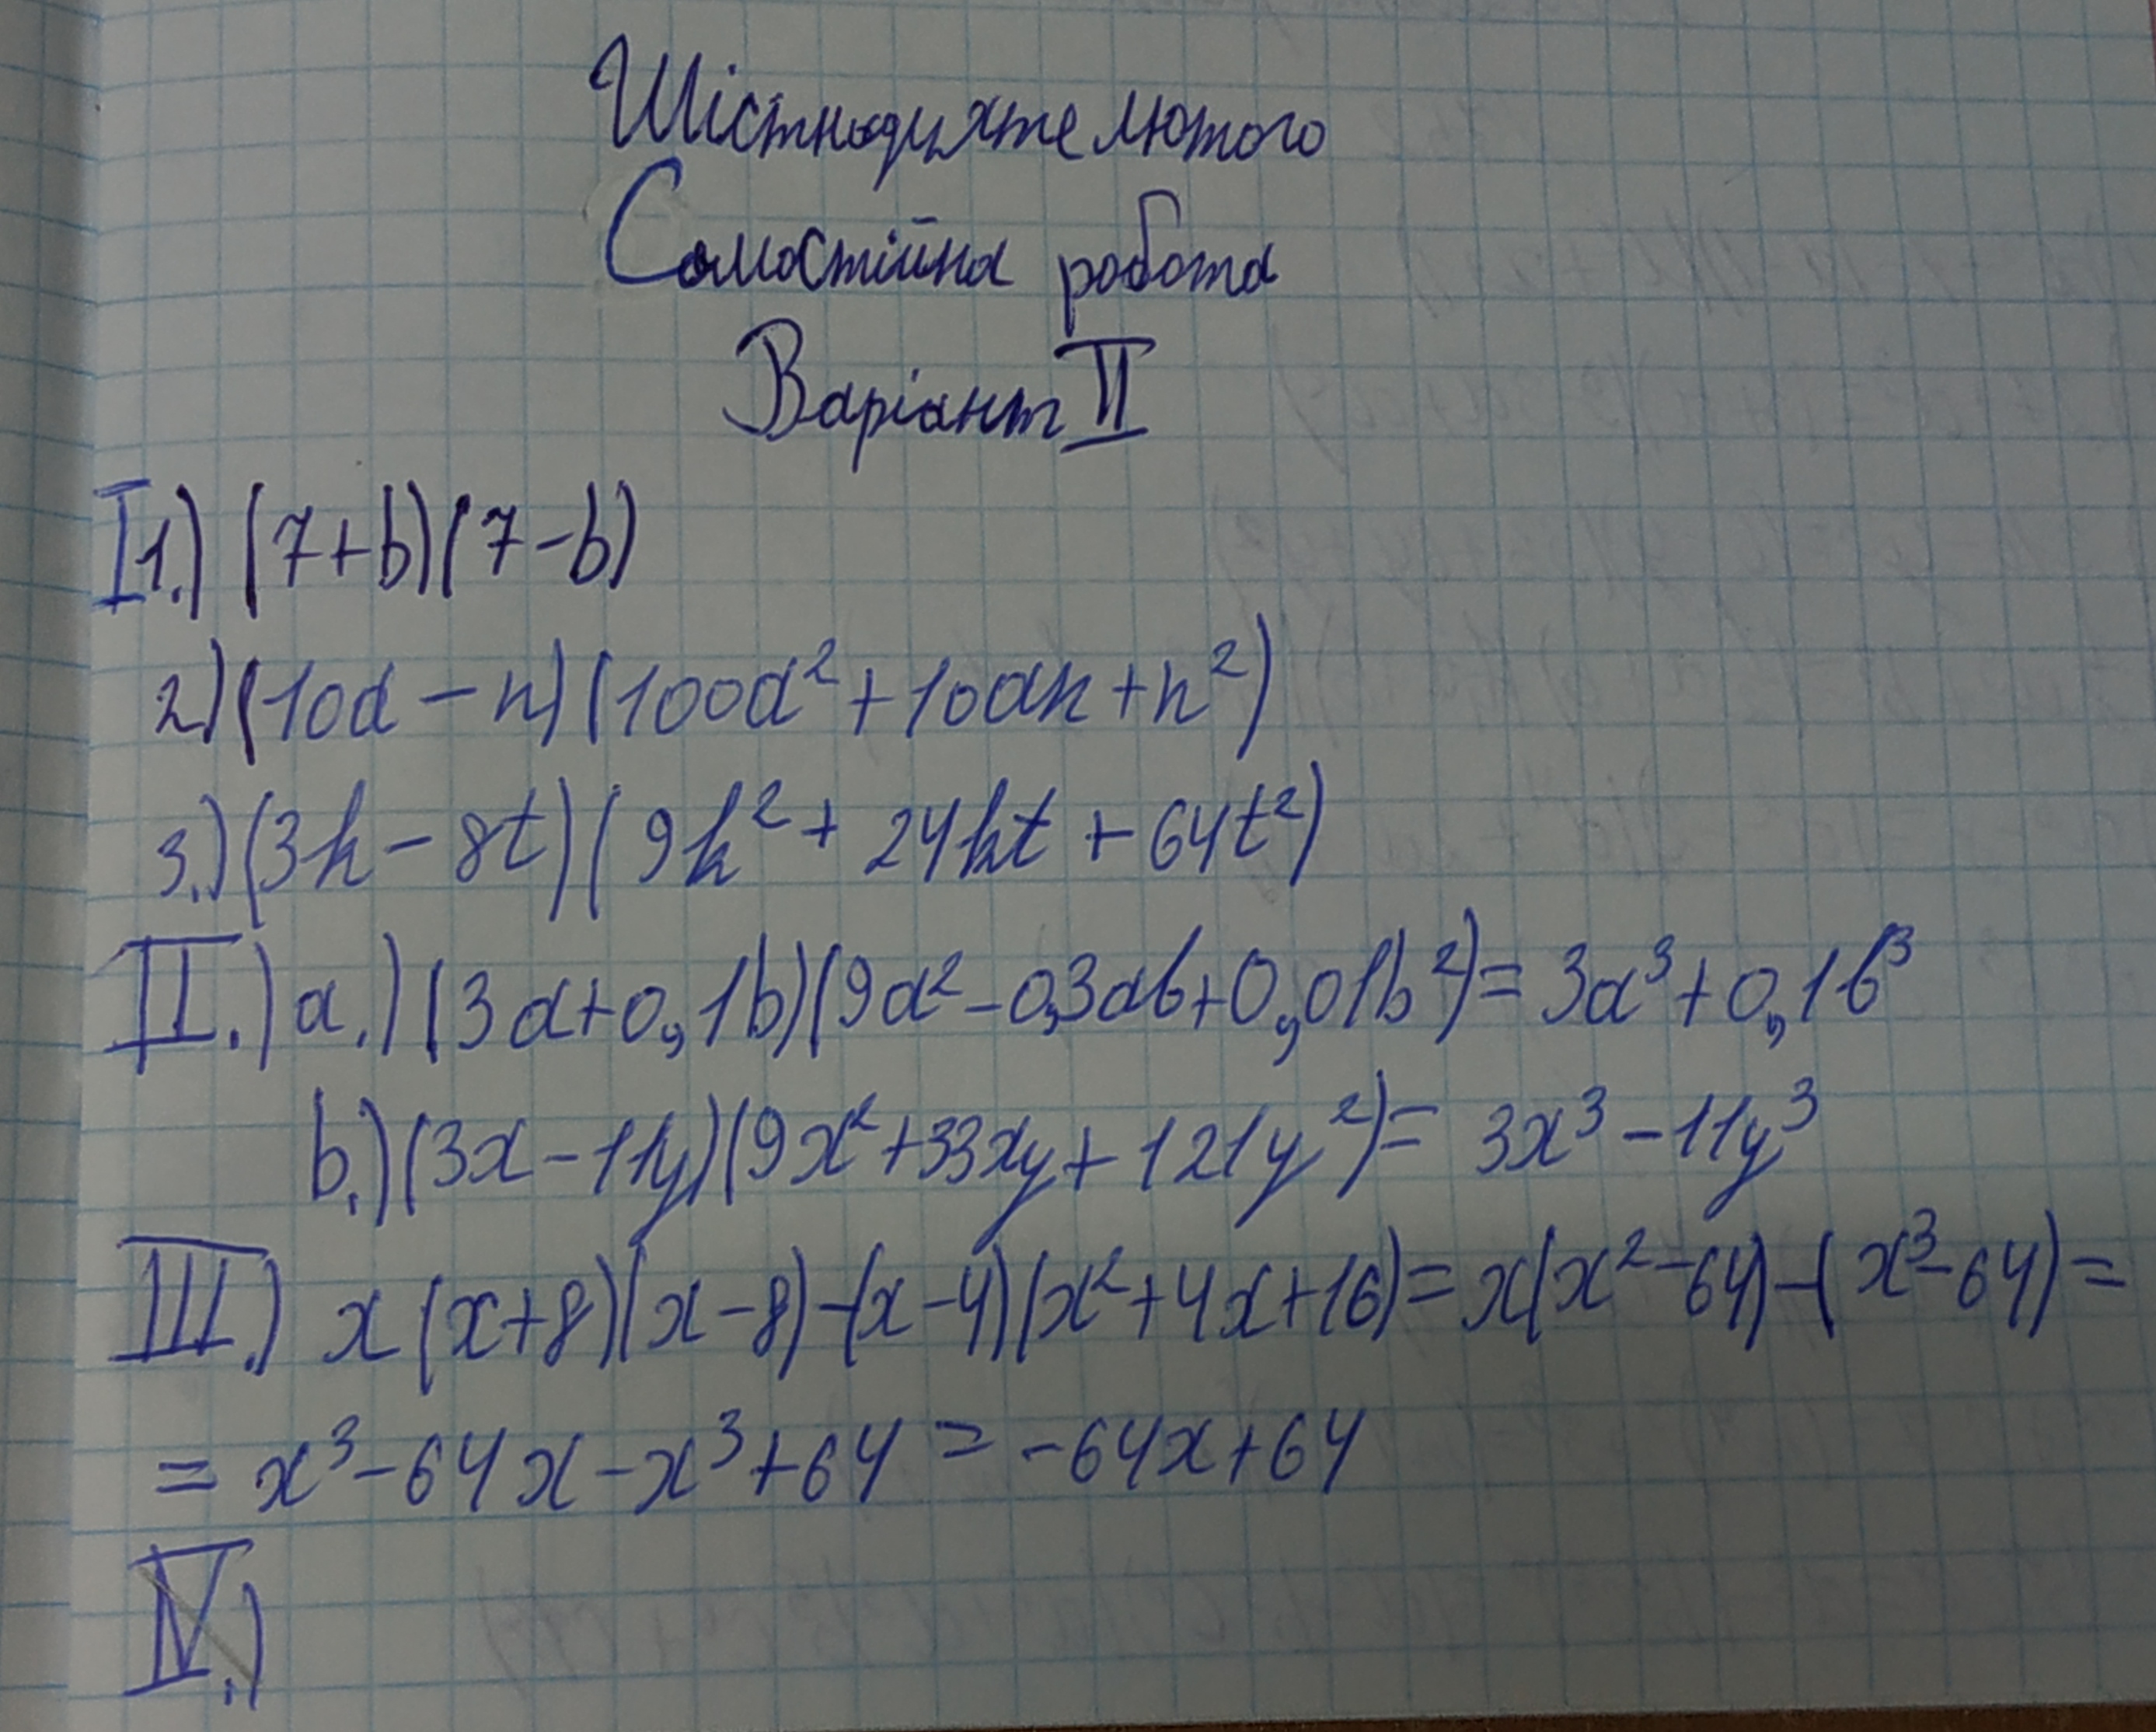 Шістнадцяте лютого
Самостійна робота
Варіант II
I 1.) (7+b)(7-b)
2) (10a - n) (100a² + 10an + n²)
3.) (3k - 8t) (9k² + 24kt + 64t²)
II.) a.) (3a+0,1b)(9a² - 0,3ab+0,01b²) = 3a³ + 0,1b³
b.) (3x - 11y)(9x² + 33xy + 121y²) = 3x³ - 11y³
III.) x (x+8)(x-8) - (x-4)(x²+4x+16) = x(x² - 64) - (x³ - 64) =
= x³ - 64x - x³ + 64 = -64x + 64
IV.)